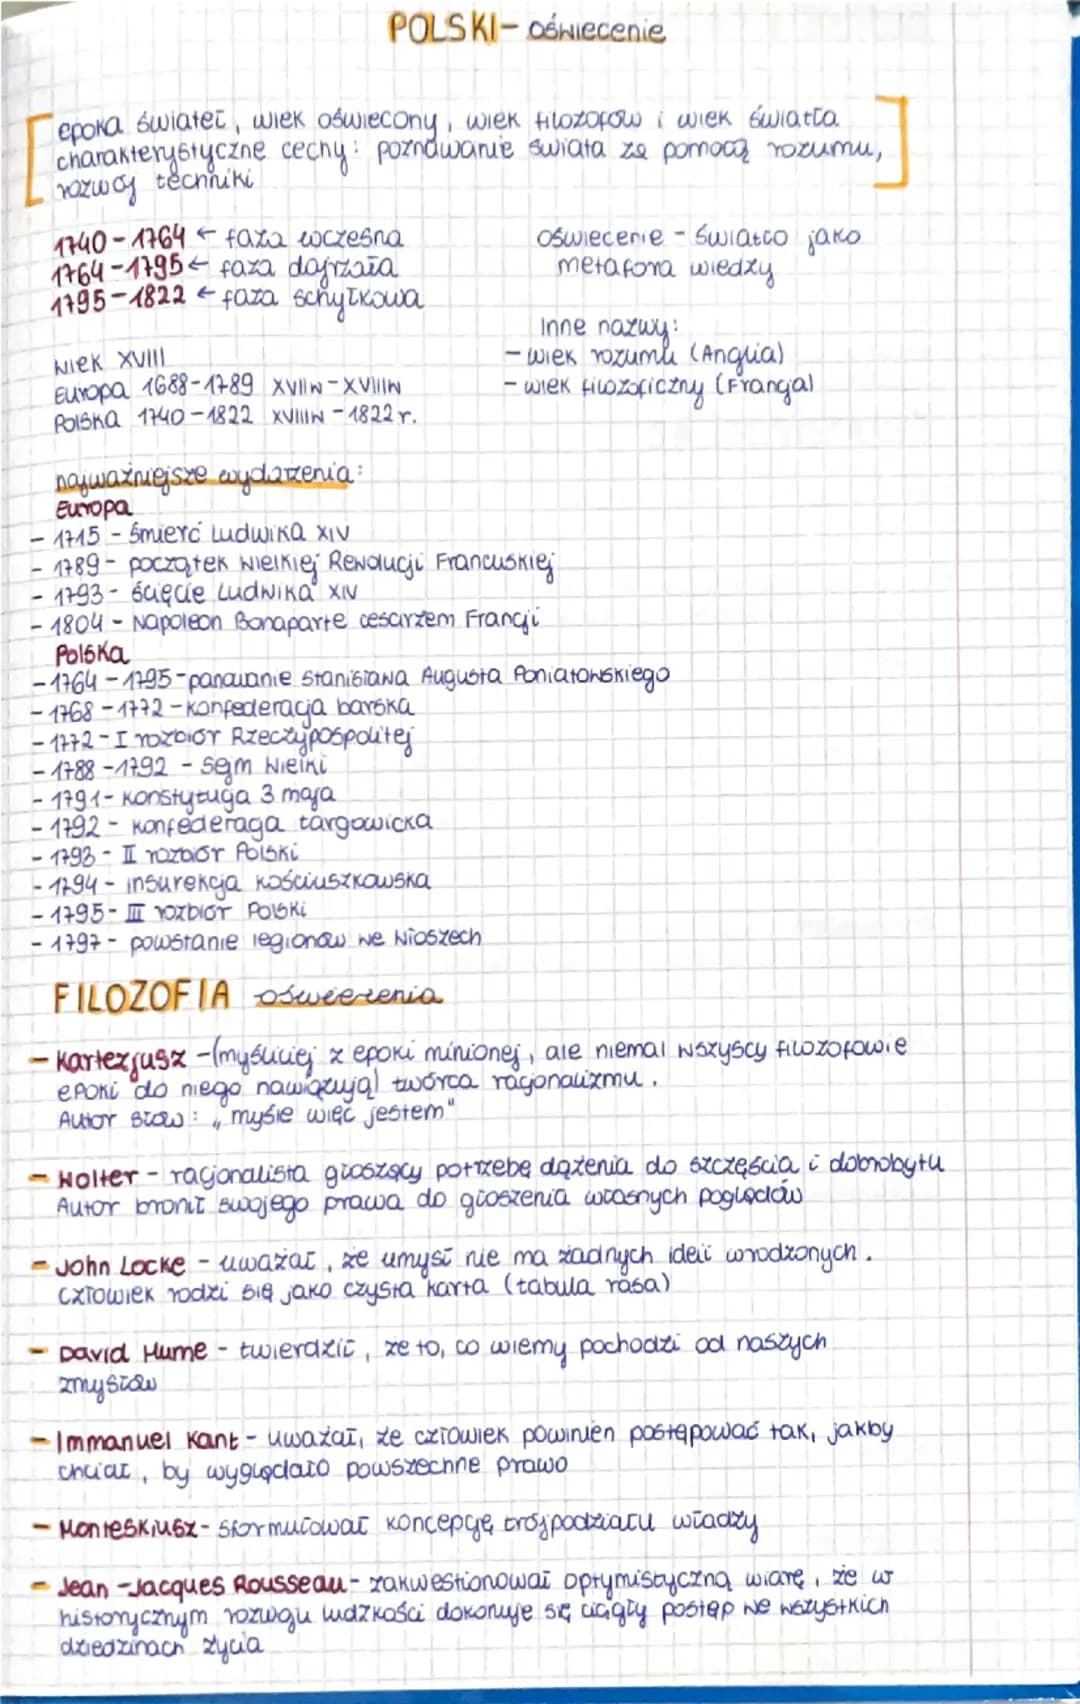 POLSKI - oświecenie
epoka świateł, wiek oświecony, wiek filozofów i wiek światła
charakterystyczne cechy: poznawanie świata za pomocą rozumu,
rozwój techniki
1740-1764 ← faza wczesna
1764-1795 ← faza dojrzała
1795-1822 ← faza schyłkowa
oświecenie - światło jako
metafora wiedzy
Inne nazwy:
- wiek rozumu (Anglia)
- wiek filozoficzny (Francja)
wiek XVIII
Europa 1688-1789 XVIIw-XVIIIw
Polska 1740-1822 XVIIIw-1822r.
najważniejsze wydarzenia:
Europa
- 1715 - śmierć Ludwika XIV
- 1789 - początek Wielkiej Rewolucji Francuskiej
- 1793 - ścięcie Ludwika XIV
- 1804 - Napoleon Bonaparte cesarzem Francji
Polska
- 1764-1795 - panowanie Stanisława Augusta Poniatowskiego
- 1768-1772 - konfederacja barska
- 1772 - I rozbiór Rzeczypospolitej
- 1788-1792 - Sejm Wielki
- 1791 - konstytucja 3 maja
- 1792 - konfederacja targowicka
- 1793 - II rozbiór Polski
- 1794 - insurekcja kościuszkowska
- 1795 - III rozbiór Polski
- 1797 - powstanie legionów we Włoszech
FILOZOFIA oświecenia
- Kartezjusz - (myśliciej z epoki minionej, ale niemal wszyscy filozofowie
epoki do niego nawiązują) twórca racjonalizmu.
Autor słów: „myśle więc jestem"
- Wolter - racjonalista głoszący potrzebę dążenia do szczęścia i dobrobytu
Autor bronił swojego prawa do głoszenia własnych poglądów
- John Locke - uważał, że umysł nie ma żadnych ideii wrodzonych.
Człowiek rodzi się jako czysta karta (tabula rasa)
- David Hume - twierdził, że to, co wiemy pochodzi od naszych
zmysłów
- Immanuel Kant - uważał, że człowiek powinien postępować tak, jakby
chciał, by wyglądało powszechne prawo
- Monteskiusz - sformułował koncepcję trójpodziału władzy
- Jean-Jacques Rousseau - zakwestionował optymistyczną wiarę, że w
historycznym rozwoju ludzkości dokonuje się ciągły postęp we wszystkich
dziedzinach życia